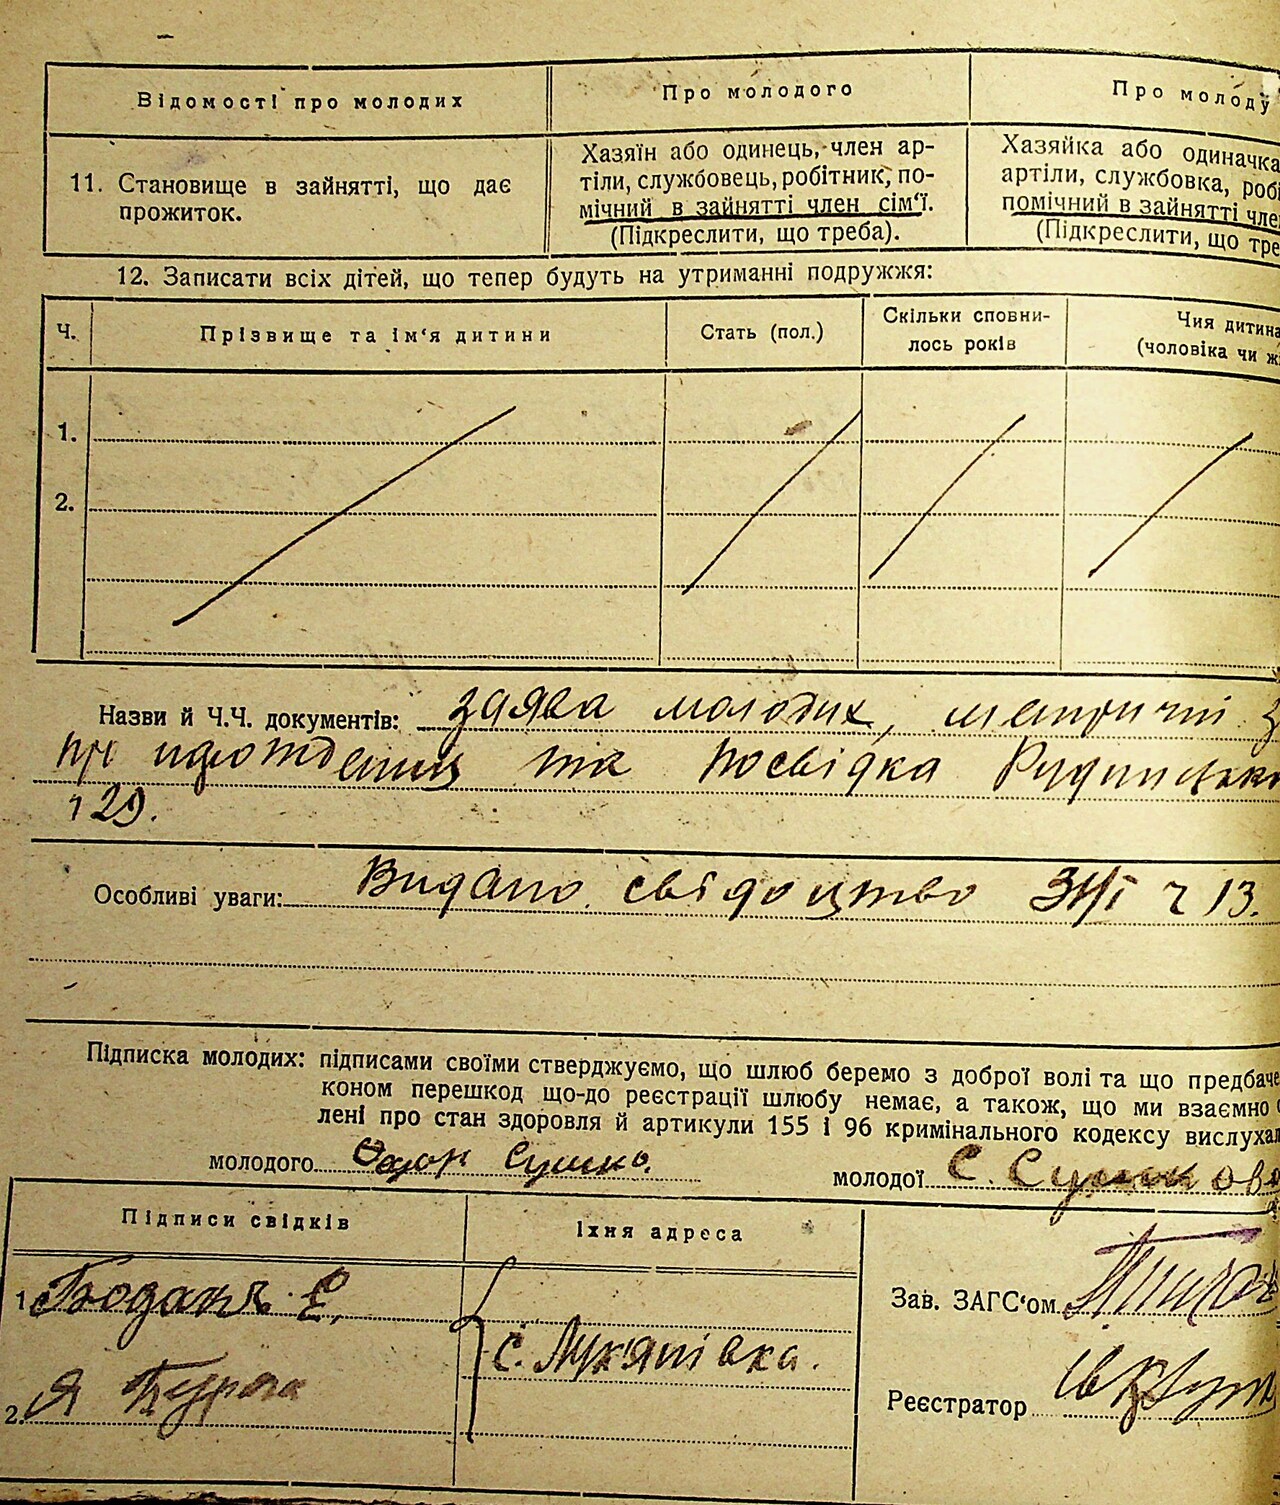 Відомості про молодих
Про молодого
Про молоду
11. Становище в зайнятті, що дає
прожиток.
Хазяїн або одинець, член ар-
тілі, службовець, робітник, по-
мічний в зайнятті член сім'ї.
(Підкреслити, що треба).
Хазяйка або одиначка
артілі, службовка, робі
помічний в зайнятті чле
(Підкреслити, що тре
12. Записати всіх дітей, що тепер будуть на утриманні подружжя:
Ч.
Прізвище та ім'я дитини
Стать (пол.)
Скільки сповни-
лось років
Чия дитина
(чоловіка чи жі
1.
2.
Назви й Ч.Ч. документів: заява молодих, метричні
про народження та посвідка
129.
Особливі уваги: Видано свідоцтво ч 13.
Підписка молодих: підписами своїми стверджуємо, що шлюб беремо з доброї волі та що предбаче
коном перешкод що-до реєстрації шлюбу немає, а також, що ми взаємно
лені про стан здоров'я й артикули 155 і 96 кримінального кодексу вислухал
молодого Федор Сушко.
молодої С. Сушкова
Підписи свідків
Їхня адреса
1. Бодак Є.
2. Я
с. Лук'янівка.
Зав. ЗАГС'ом
Реєстратор